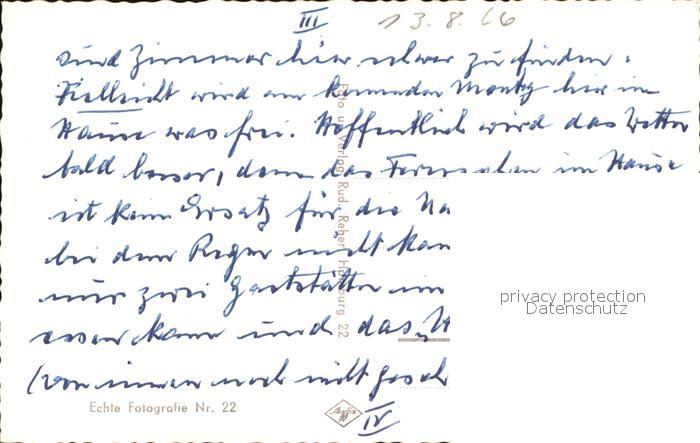 III
13.8.66
sind Zimmer hier schwer zu finden.
Vielleicht wird am kommenden Montag hier im
Hause was frei. Hoffentlich wird das Wetter
bald besser, denn das Fernsehen im Hause
ist kein Ersatz für die Na
bei dem Regen nicht kan
nur zwei Gaststätten im
essen kann und das
(von innen noch nicht geseh
IV
Foto u. Verlag Rud. Reher Hamburg 22
Echte Fotografie Nr. 22
Agfa
privacy protection
Datenschutz